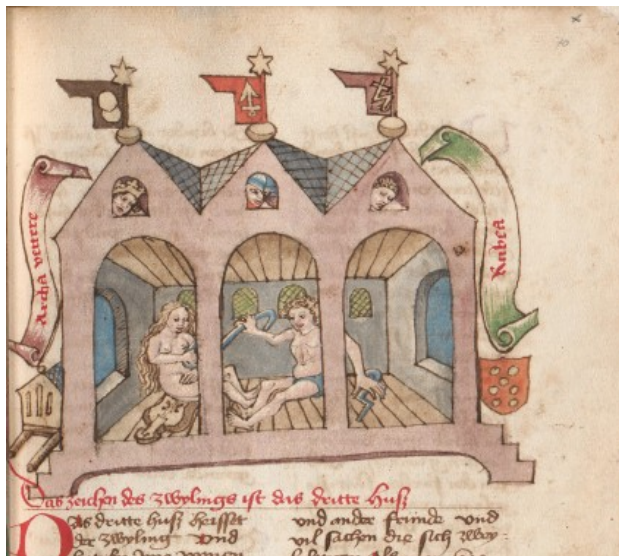 Archa venere
Rabea
Das zeichen des zwylings ist das dritte Huß
Das dritte huß heisset
der zwyling Vnd
und ander freinde und
vil sachen die sich zwey-